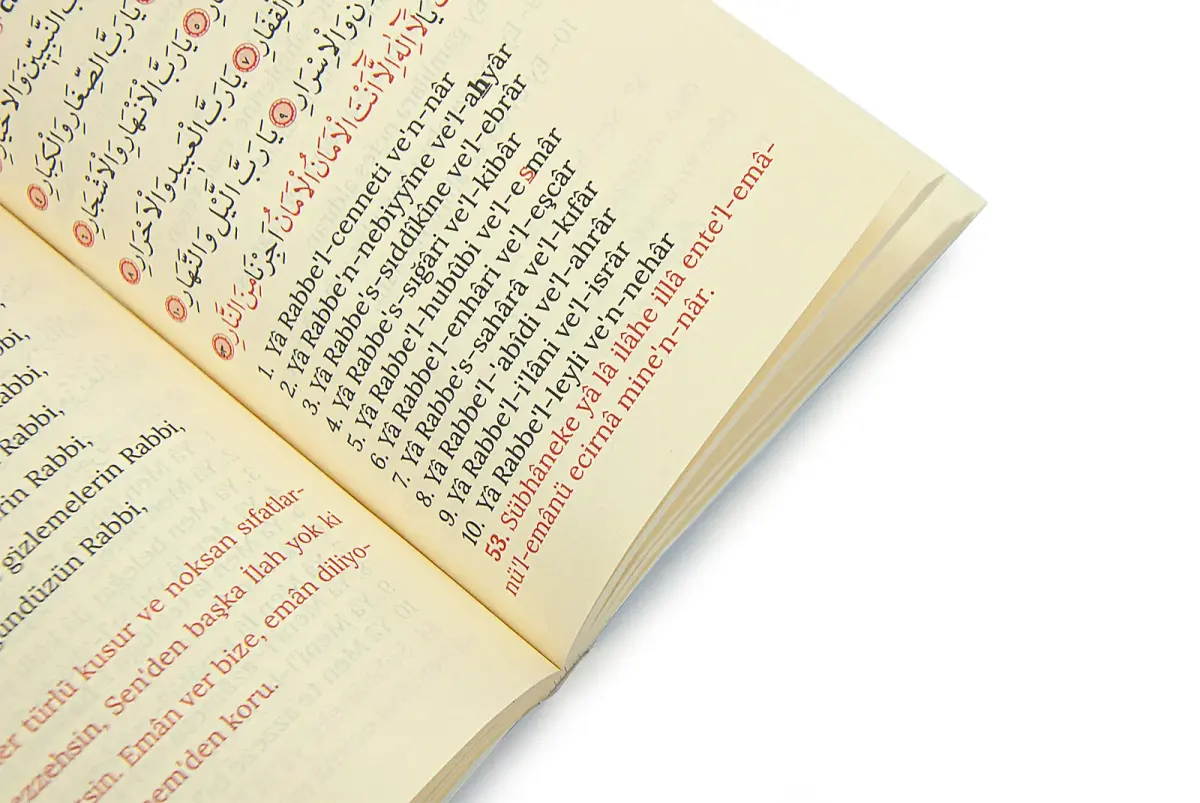 bbi,
abbi,
Rabbi,
rin Rabbi,
gizlemelerin Rabbi,
gündüzün Rabbi,
er türlü kusur ve noksan sıfatlar-
ezzehsin, Sen'den başka İlah yok ki
sin. Emân ver bize, emân diliyo-
em'den koru.
النَّبِيّينَ وَالْاَخْيَارِ
يَارَبَّ الصِّغَارِ وَالْكِبَارِ ٤
٥ يَارَبَّ الْاَنْهَارِ وَالْاَشْجَارِ ٦
الْقِفَارِ ٧ يَارَبَّ الْعَبِيدِ وَالْاَحْرَارِ ٨
وَالْاِسْرَارِ ٩ يَارَبَّ الَّيْلِ وَالنَّهَارِ ١٠
يَالَٓا اِلٰهَ اِلَّٓا اَنْتَ الْاَمَانُ الْاَمَانُ اَجِرْنَا مِنَ النَّارِ
1. Yâ Rabbe'l-cenneti ve'n-nâr
2. Yâ Rabbe'n-nebiyyîne ve'l-ahyâr
3. Yâ Rabbe's-sıddîkîne ve'l-ebrâr
4. Yâ Rabbe's-sığâri ve'l-kibâr
5. Yâ Rabbe'l-hubûbi ve'l-esmâr
6. Yâ Rabbe'l-enhâri ve'l-eşcâr
7. Yâ Rabbe's-sahârâ ve'l-kıfâr
8. Yâ Rabbe'l-'abîdi ve'l-ahrâr
9. Yâ Rabbe'l-i'lâni ve'l-isrâr
10. Yâ Rabbe'l-leyli ve'n-nehâr
53. Sübhâneke yâ lâ ilâhe illâ ente'l-emâ-
nü'l-emânü ecirnâ mine'n-nâr.